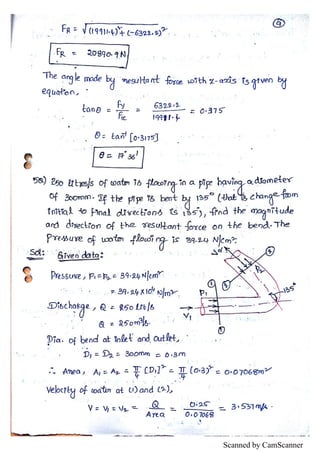 9
FR = √(19911.4)²+(-6322.2)²
FR = 20890.9N
The angle made by resultant force with x-axis is given by
equation,
tanθ = Fy/Fx = 6322.2/19911.4 = 0.3175
θ = tan⁻¹ [0.3175]
θ = 17°36'
58) 250 litres/s of water is flowing in a pipe having a diameter
of 300mm. If the pipe is bent by 135° (that is change from
initial to final directions is 135°), find the magnitude
and direction of the resultant force on the bend. The
pressure of water flowing is 39.24 N/cm².
Sol: Given data:
Pressure, P₁=P₂ = 39.24 N/cm²
= 39.24×10⁴ N/m²
Discharge, Q = 250 lit/s
Q = 250m³/s.
Dia. of bend at inlet and outlet,
D₁ = D₂ = 300mm = 0.3m
∴ Area, A₁ = A₂ = π/4 [D₁]² = π/4 (0.3)² = 0.07068m²
Velocity of water at (1) and (2),
V = V₁ = V₂ = Q/Area = 0.25/0.07068 = 3.537m/s.
P₁
V₁
135°
Scanned by CamScanner